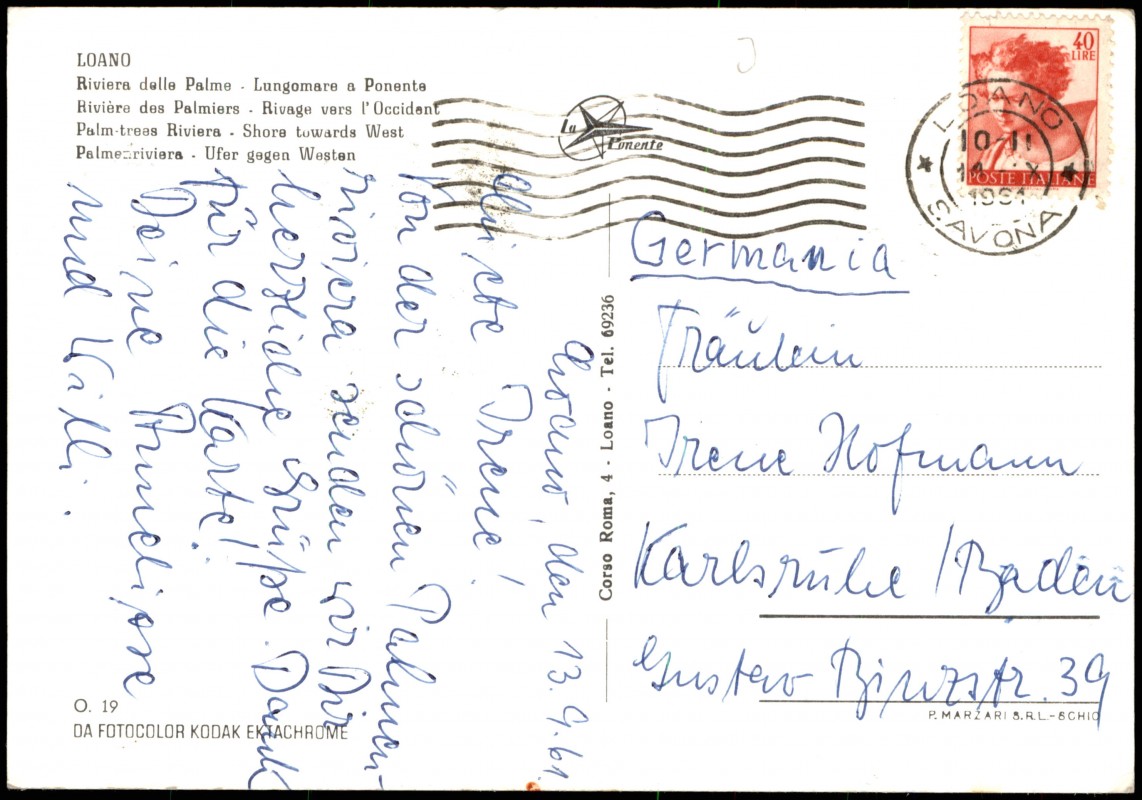 LOANO
Riviera delle Palme - Lungomare a Ponente
Rivière des Palmiers - Rivage vers l'Occident
Palm-trees Riviera - Shore towards West
Palmenriviera - Ufer gegen Westen
La Ponente
40
LIRE
POSTE ITALIANE
LOANO
10-11
IX
1961
SAVONA
Loano, den 13.9.61.
Liebe Irene!
Von der schönen Palmen-
riviera senden wir Dir
herzliche Grüße. Dank
für die Karte!
Deine Anneliese
und Willi.
Corso Roma, 4 - Loano - Tel. 69236
Germania
Fräulein
Irene Hofmann
Karlsruhe / Baden
Gustav Binzstr. 39
O. 19
DA FOTOCOLOR KODAK EKTACHROME
P. MARZARI S.R.L.-SCHIO